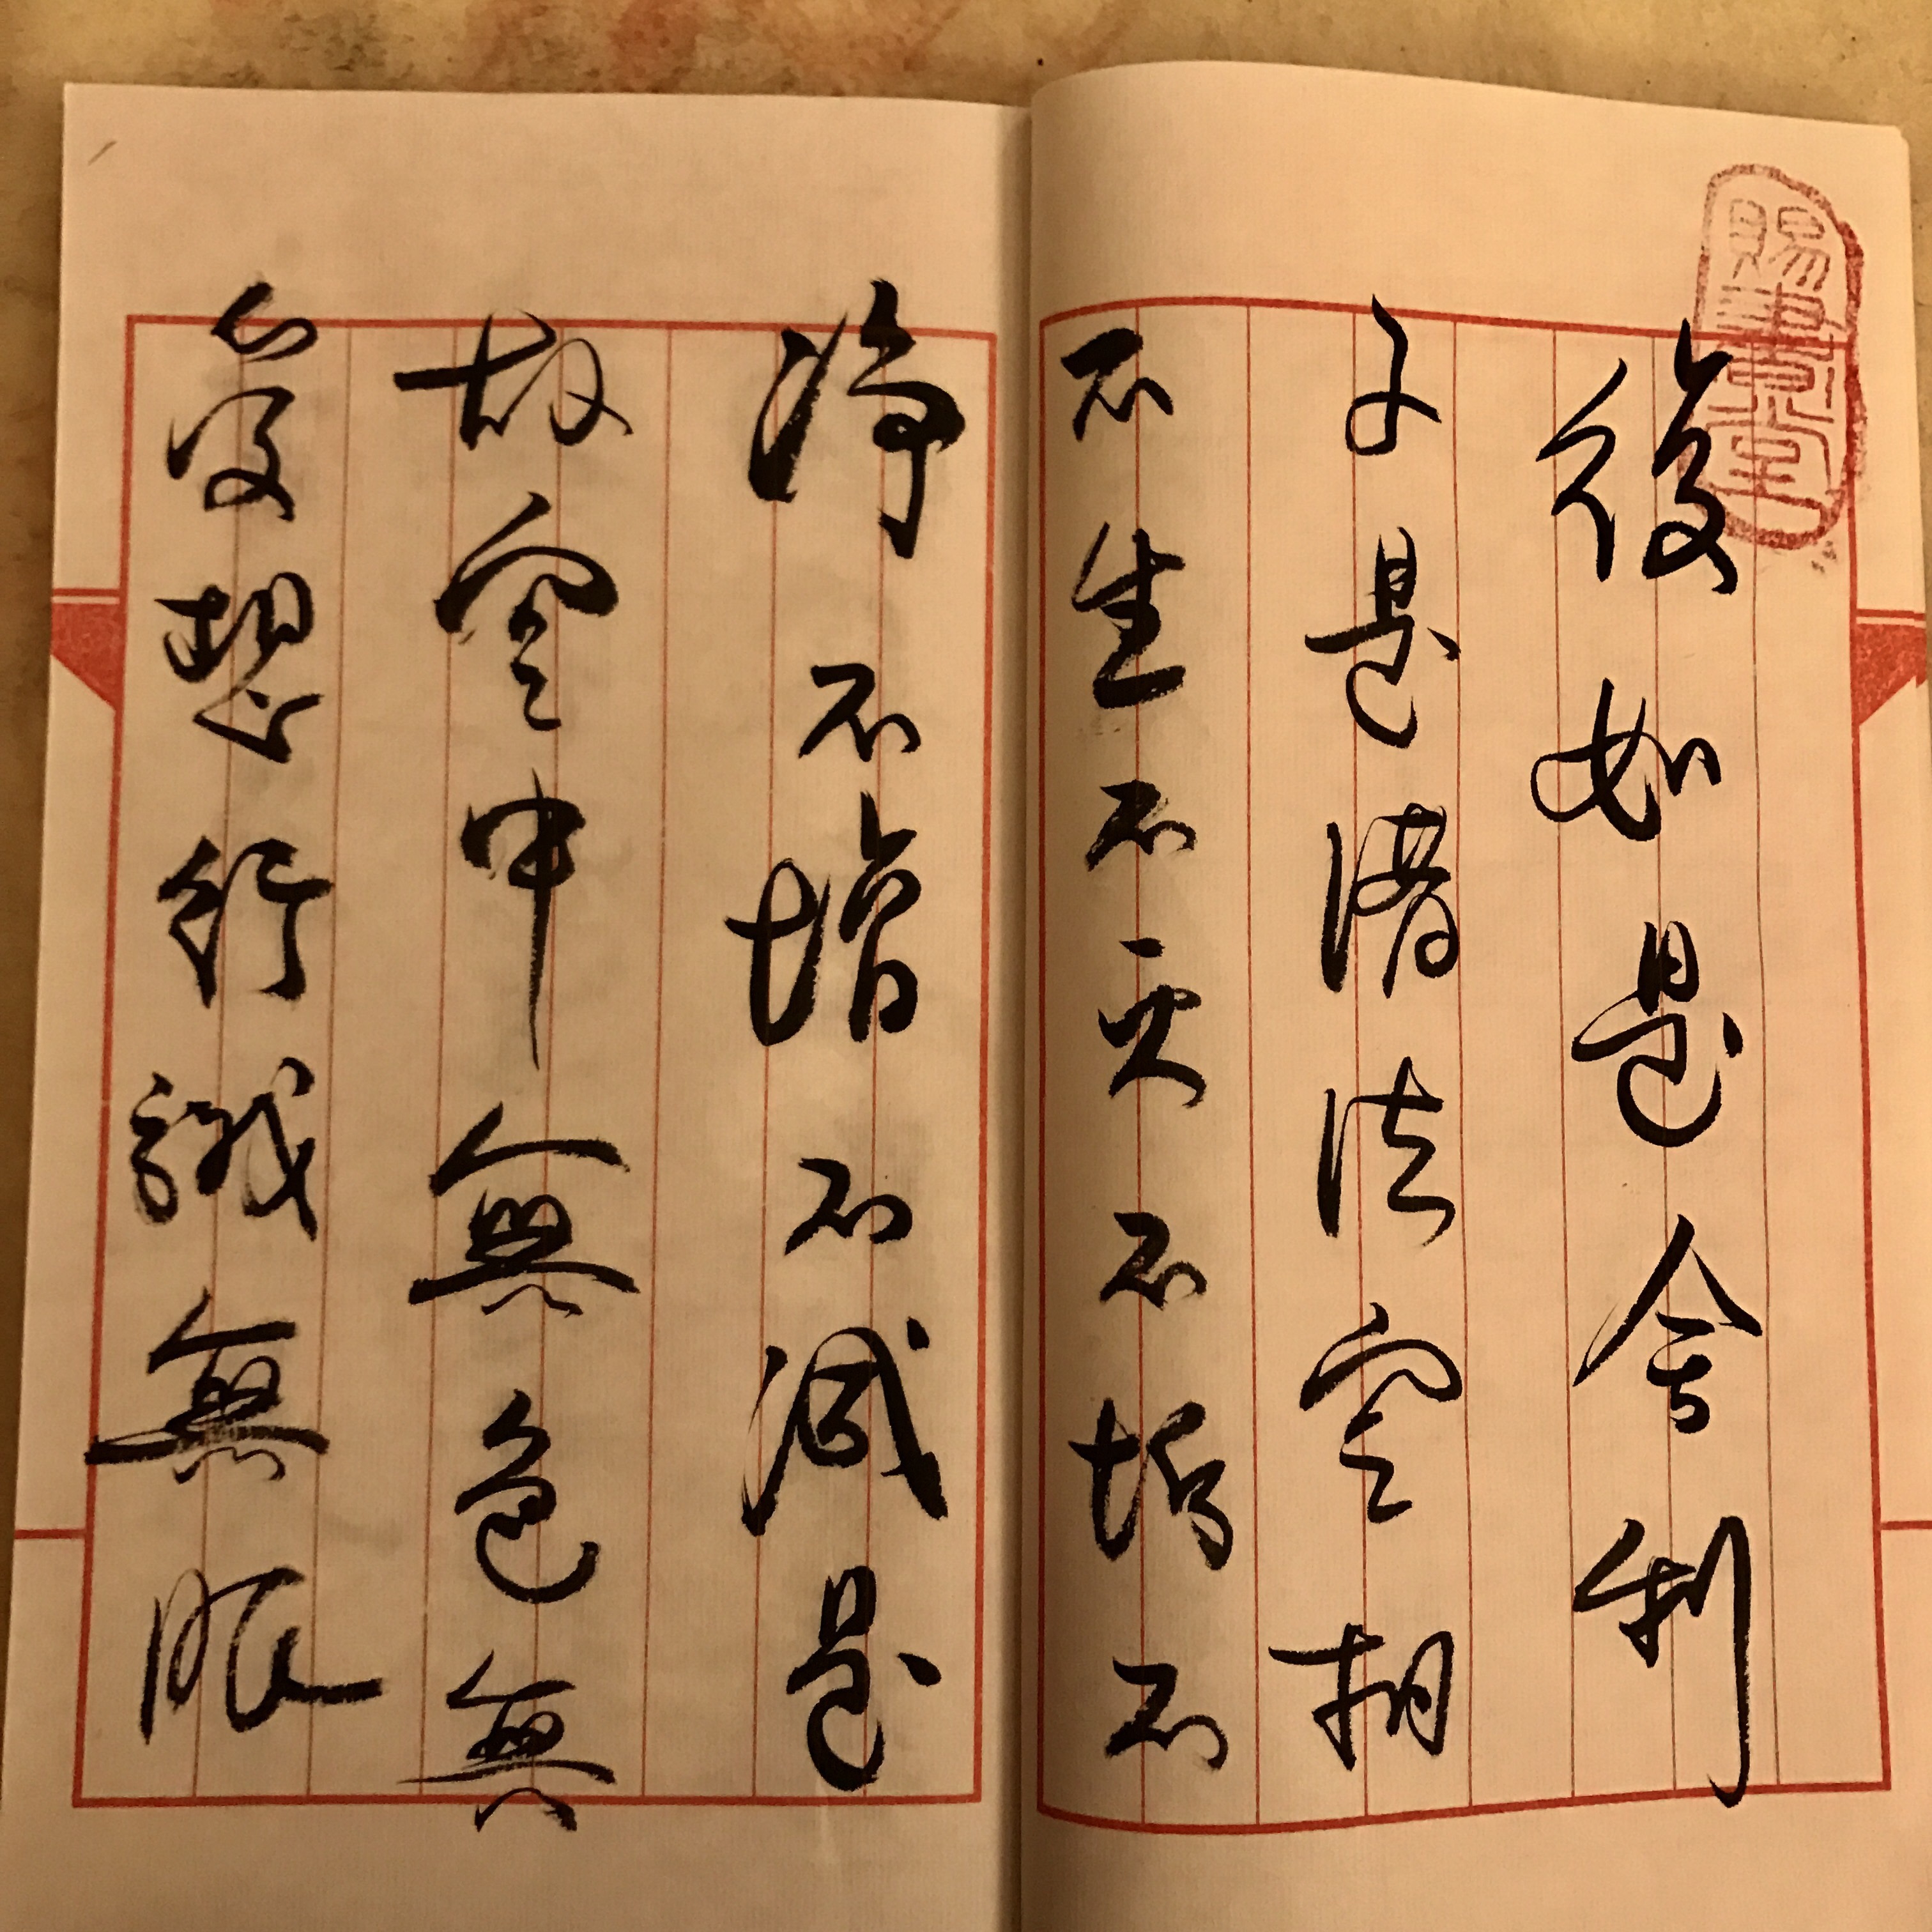 賜書堂
復如是舍利
子是諸法空相
不生不灭不垢不
淨不增不減是
故空中無色無
受想行識無眼